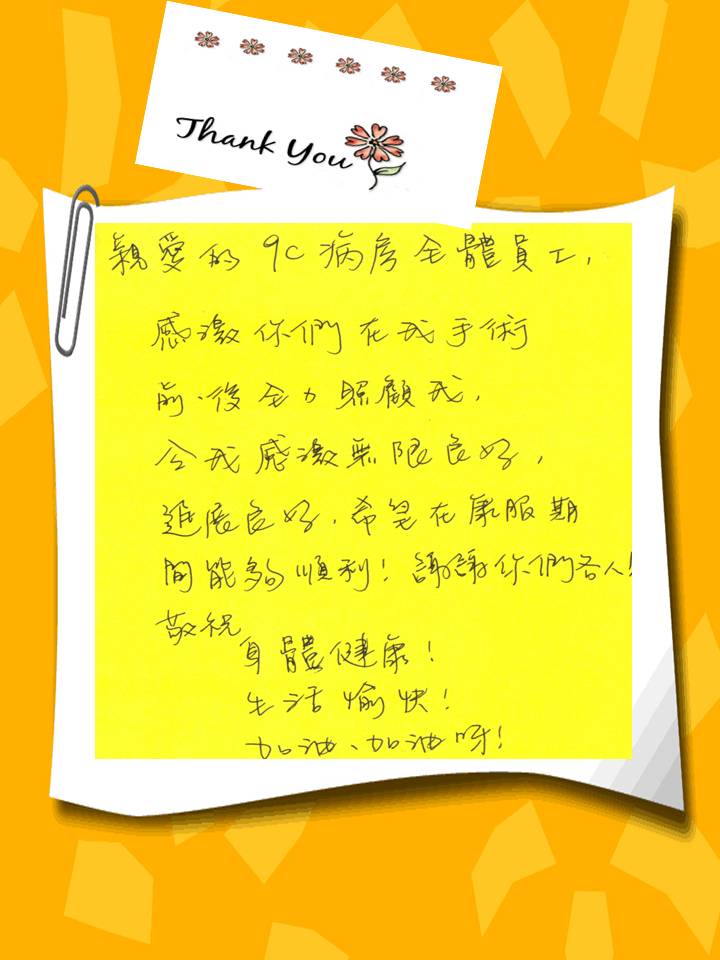 Thank You
親愛的 9C 病房全體員工,
感激你們在我手術
前、後全力照顧我,
令我感激無限良好,
進展良好,希望在康服期
間能夠順利!謝謝你們各人!
敬祝
身體健康!
生活愉快!
加油、加油呀!